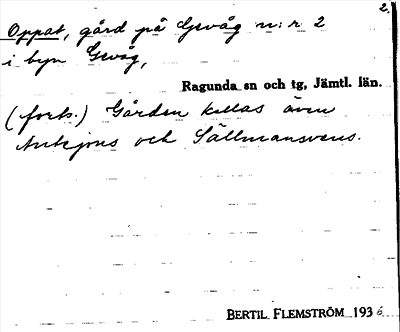 2.
Oppat, gård på Gevåg n:r 2
i byn Gevåg,
Ragunda sn och tg, Jämtl. län.
(forts.) Gården kallas även
Antejons och Sällmansvens.
BERTIL FLEMSTRÖM 1936